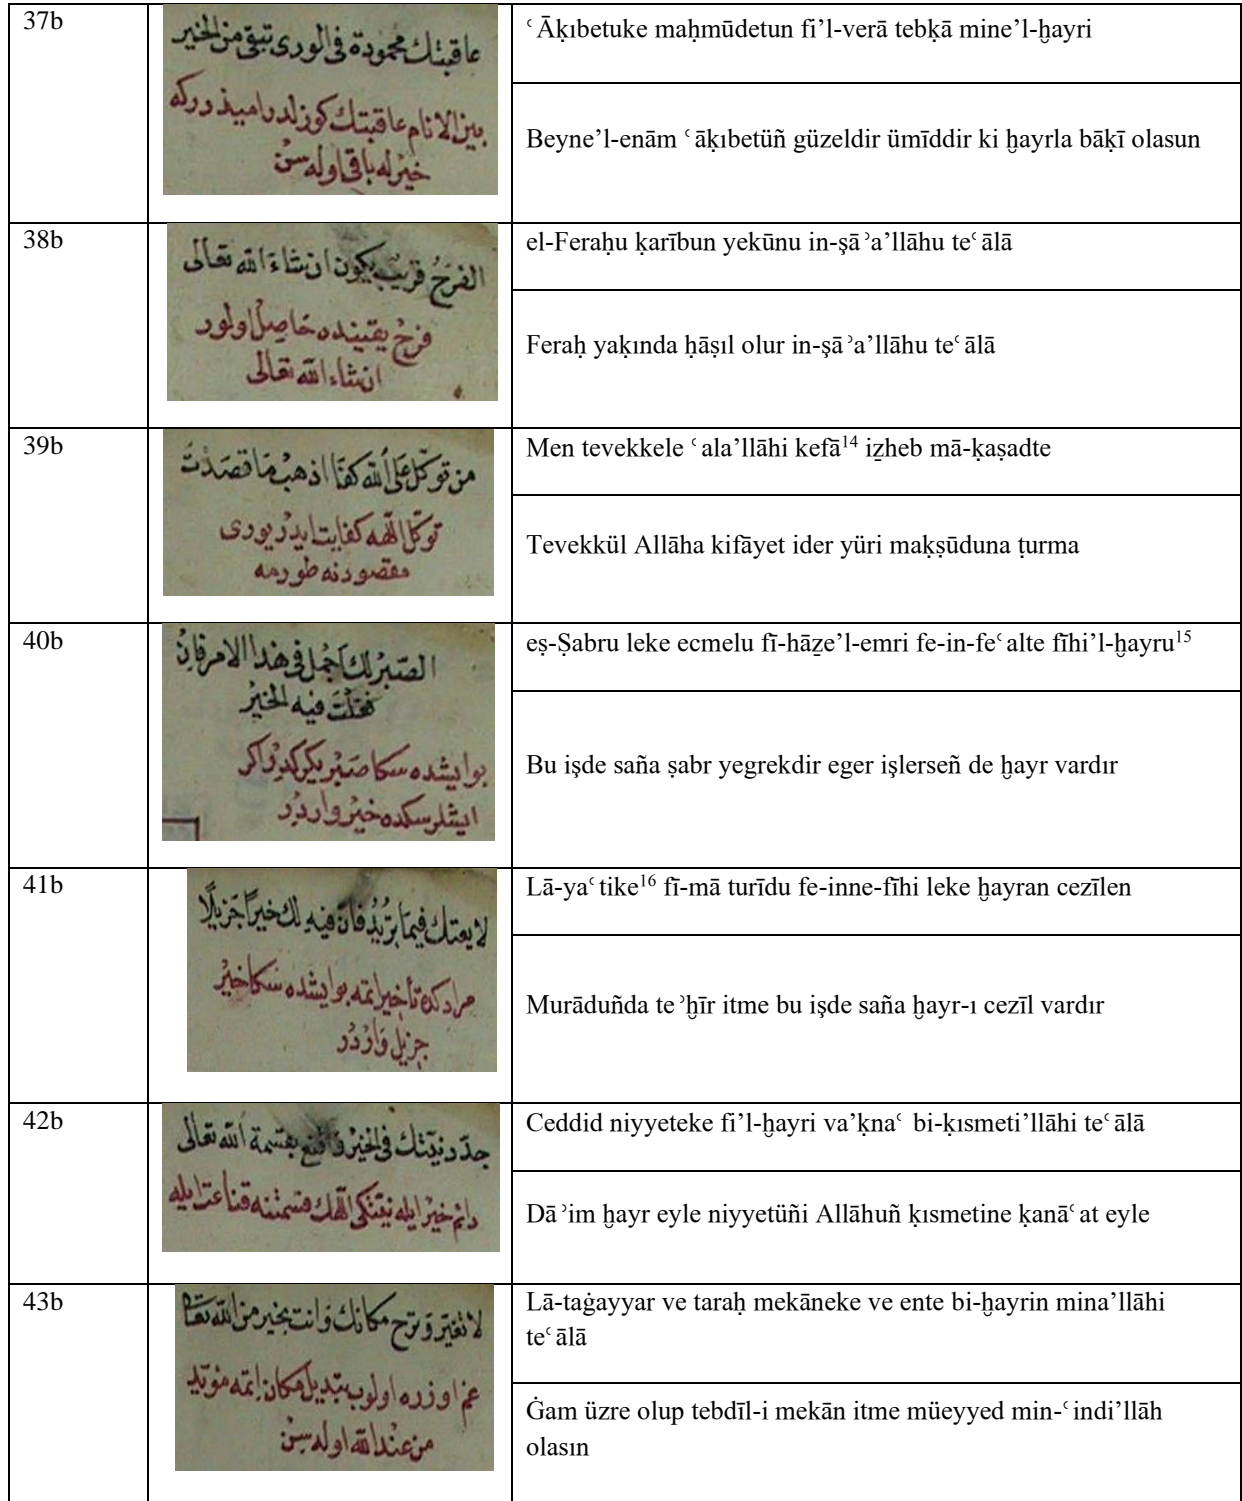 37b
عاقبتك محمودة فى الورى تبقى من الخير
بين الانام عاقبتك كوزلدر اميددر كه
خيرله باقى اوله سن
ʿĀḳıbetuke maḥmūdetun fi’l-verā tebḳā mine’l-ḫayri
Beyne’l-enām ʿāḳıbetüñ güzeldir ümīddir ki ḫayrla bāḳī olasun
38b
الفرح قريب يكون ان شاء الله تعالى
فرح يقينده حاصل اولور
ان شاء الله تعالى
el-Feraḥu ḳarībun yekūnu in-şāʾa’llāhu teʿālā
Feraḥ yaḳında ḥāṣıl olur in-şāʾa’llāhu teʿālā
39b
من توكل على الله كفا اذهب ما قصدت
توكل اللهه كفايت ايدر يورى
مقصودنه طورمه
Men tevekkele ʿala’llāhi kefā14 iẕheb mā-ḳaṣadte
Tevekkül Allāha kifāyet ider yüri maḳṣūduna ṭurma
40b
الصبر لك اجمل فى هذا الامر فان
فعلت فيه الخير
بو ايشده سكا صبر يكركدر واكر
ايشلرسكده خير واردر
eṣ-Ṣabru leke ecmelu fī-hāẕe’l-emri fe-in-feʿalte fīhi’l-ḫayru15
Bu işde saña ṣabr yegrekdir eger işlerseñ de ḫayr vardır
41b
لا يعتك فيما تريد فان فيه لك خيرا جزيلا
مرادكده تأخير ايتمه بو ايشده سكا خير
جزيل واردر
Lā-yaʿtike16 fī-mā turīdu fe-inne-fīhi leke ḫayran cezīlen
Murāduñda teʾḫīr itme bu işde saña ḫayr-ı cezīl vardır
42b
جدد نيتك فى الخير واقنع بقسمة الله تعالى
دائم خير ايله نيتكى اللهك قسمتنه قناعت ايله
Ceddid niyyeteke fi’l-ḫayri va’ḳnaʿ bi-ḳısmeti’llāhi teʿālā
Dāʾim ḫayr eyle niyyetüñi Allāhuñ ḳısmetine ḳanāʿat eyle
43b
لا تغير وترح مكانك وانت بخير من الله تعا
غم اوزره اولوب تبديل مكان ايتمه مؤيد
من عند الله اوله سن
Lā-taġayyar ve taraḥ mekāneke ve ente bi-ḫayrin mina’llāhi
teʿālā
Ġam üzre olup tebdīl-i mekān itme müeyyed min-ʿindi’llāh
olasın